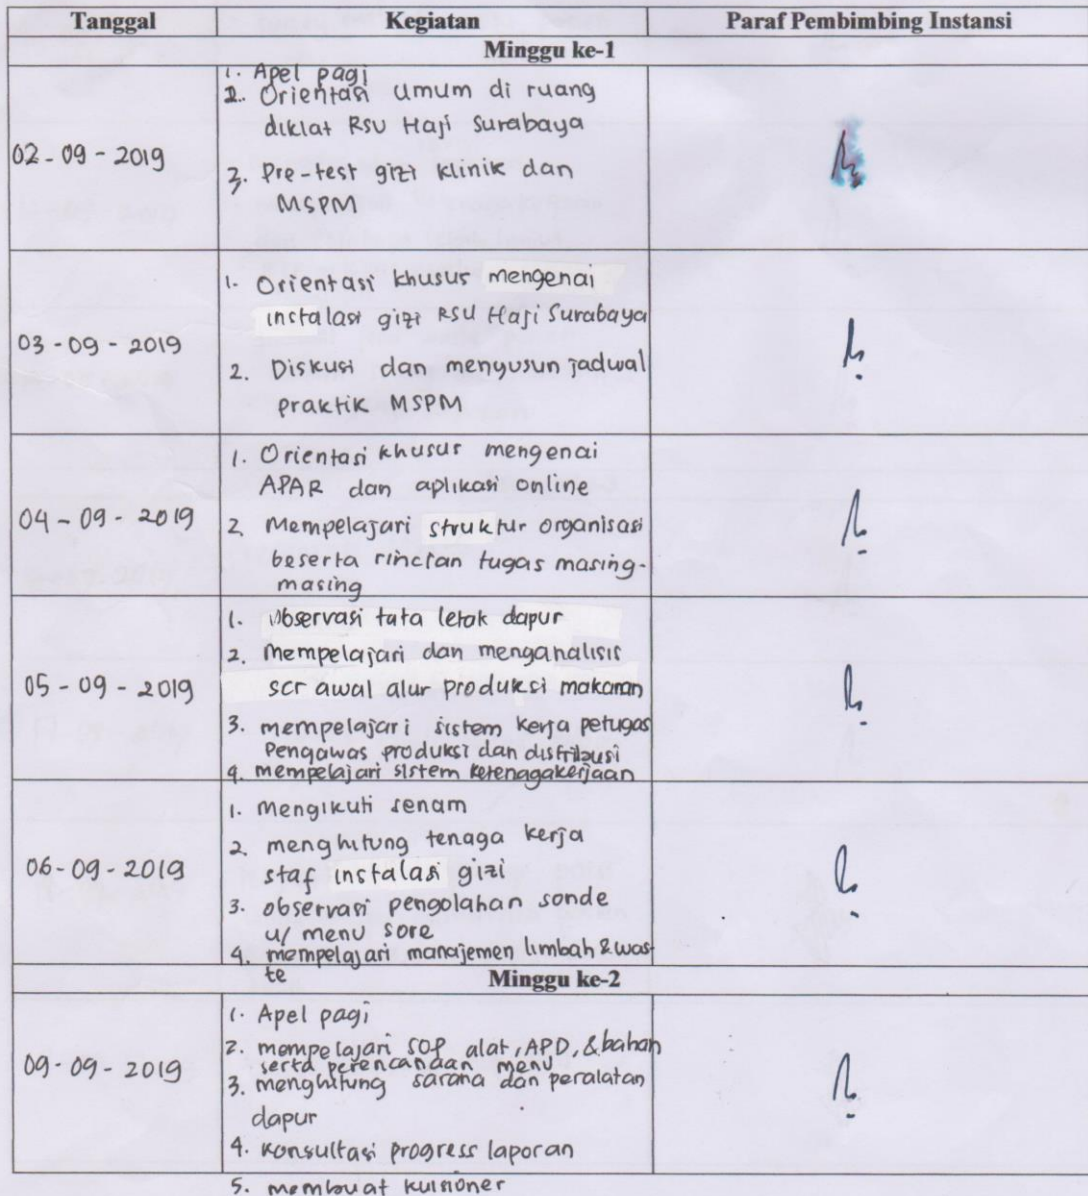 Tanggal Kegiatan Paraf Pembimbing Instansi
Minggu ke-1
02-09-2019
1. Apel pagi
2. Orientasi umum di ruang
diklat RSU Haji Surabaya
3. Pre-test gizi klinik dan
MSPM
03-09-2019
1. Orientasi khusus mengenai
instalasi gizi RSU Haji Surabaya
2. Diskusi dan menyusun jadwal
praktik MSPM
04-09-2019
1. Orientasi khusus mengenai
APAR dan aplikasi online
2. Mempelajari struktur organisasi
beserta rincian tugas masing-
masing
05-09-2019
1. Observasi tata letak dapur
2. Mempelajari dan menganalisis
scr awal alur produksi makanan
3. mempelajari sistem kerja petugas
Pengawas produksi dan distribusi
4. mempelajari sistem ketenagakerjaan
06-09-2019
1. Mengikuti senam
2. menghitung tenaga kerja
staf instalasi gizi
3. observasi pengolahan sonde
u/ menu sore
4. mempelajari manajemen limbah & was-
te
Minggu ke-2
09-09-2019
1. Apel pagi
2. mempelajari SOP alat, APD, & bahan
serta perencanaan menu
3. menghitung sarana dan peralatan
dapur
4. Konsultasi progress laporan
5. membuat kuisioner